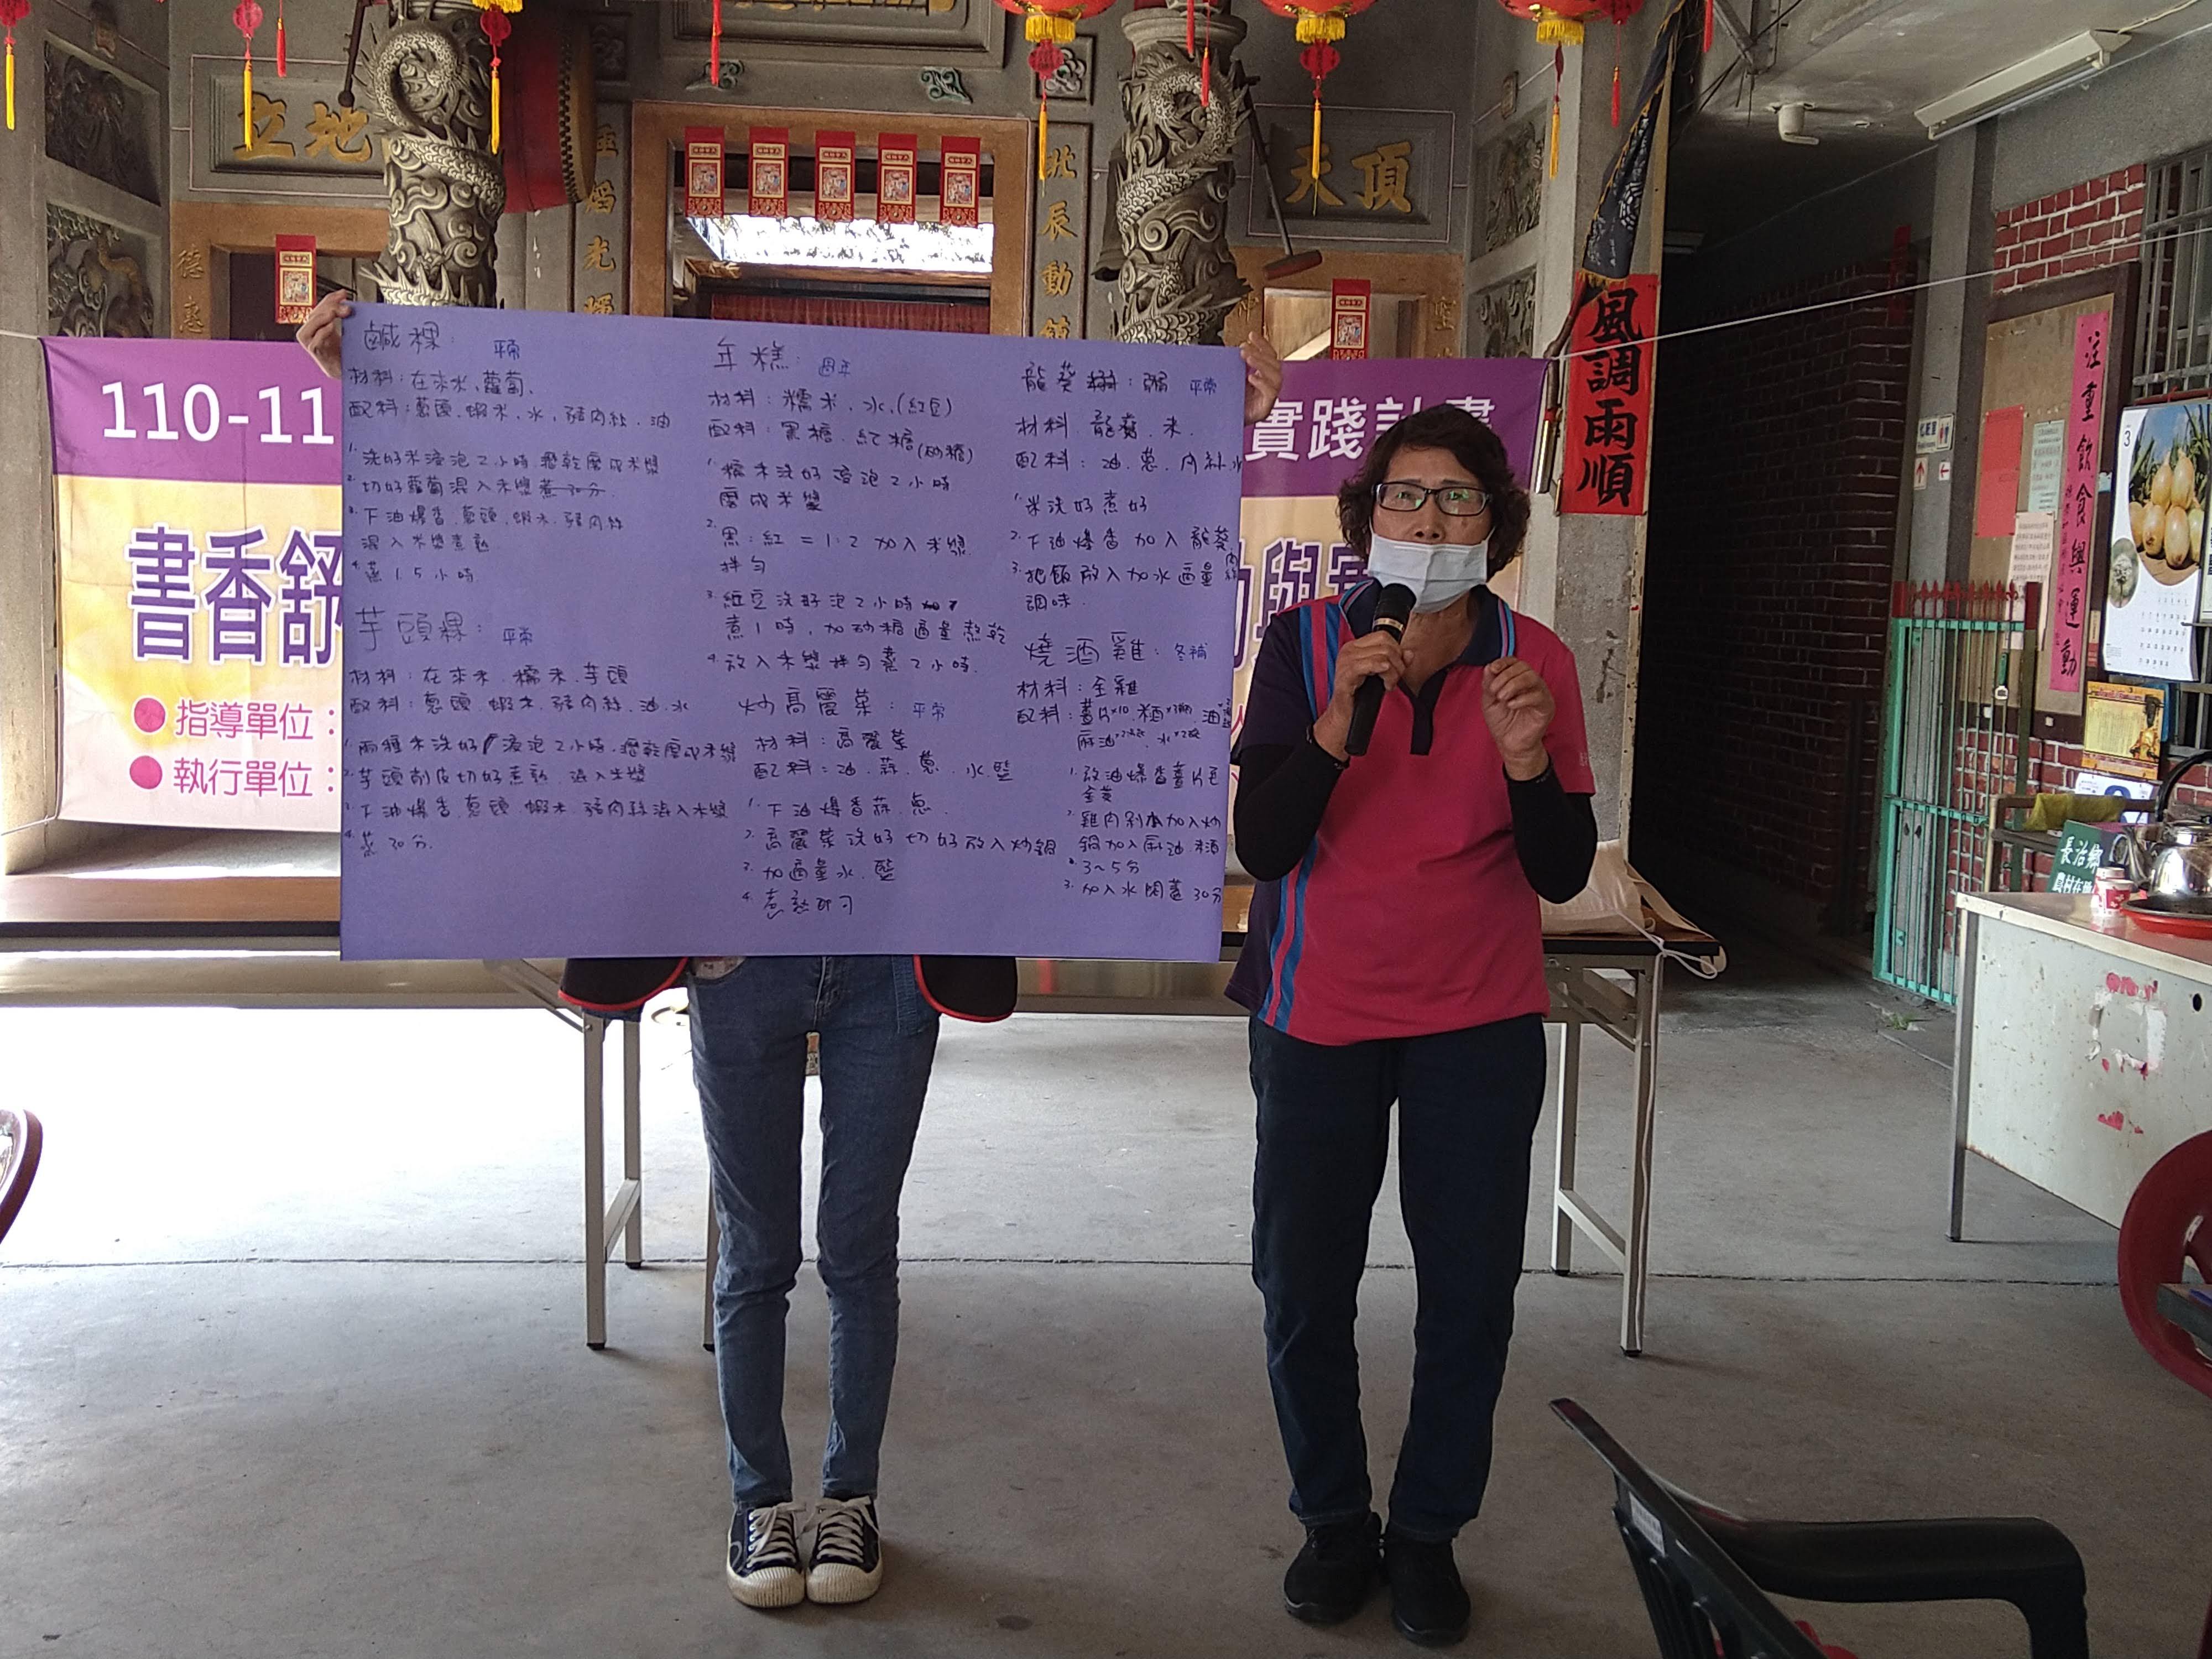 立地
頂天
德惠
北辰動
風調雨順
注重飲食與運動
110-11
實踐計畫
書香舒
指導單位：
執行單位：
長治鄉
3
鹹粿： 平常
材料：在來米、蘿蔔、
配料：蔥頭、蝦米、水、豬肉絲、油
1. 洗好米浸泡2小時 瀝乾磨成米漿
2. 切好蘿蔔混入米漿
3. 下油爆香蔥頭、蝦米、豬肉絲
混入米漿煮熟
4. 蒸1.5小時
芋頭粿： 平常
材料：在來米、糯米、芋頭
配料：蔥頭、蝦米、豬肉絲、油、水
1. 兩種米洗好浸泡2小時、瀝乾磨成米漿
2. 芋頭削皮切好煮熟、混入米漿
3. 下油爆香蔥頭、蝦米、豬肉絲混入米漿
4. 蒸30分.
年糕： 過年
材料：糯米、水、(紅豆)
配料：黑糖、紅糖(砂糖)
1. 糯米洗好浸泡2小時
磨成米漿
2. 黑：紅 = 1:2 加入米漿
拌勻
3. 紅豆洗好泡2小時
煮1時，加砂糖適量熬乾
4. 放入米漿拌勻蒸2小時.
炒高麗菜： 平常
材料：高麗菜
配料：油、蒜、蔥、水、鹽
1. 下油爆香蒜、蔥
2. 高麗菜洗好切好放入炒鍋
3. 加適量水、鹽
4. 煮熟即可
龍葵粥 平常
材料 龍葵、米.
配料：油、蔥、肉絲、水
1. 米洗好煮好
2. 下油爆香加入龍葵肉絲
3. 把飯放入加水適量
調味.
燒酒雞： 冬補
材料：全雞
配料：薑片x10、米酒、油
麻油、水
1. 放油爆香薑片至
金黃
2. 雞肉剁本加入炒
鍋加入麻油、米酒
3~5分
3. 加入水悶蓋30分